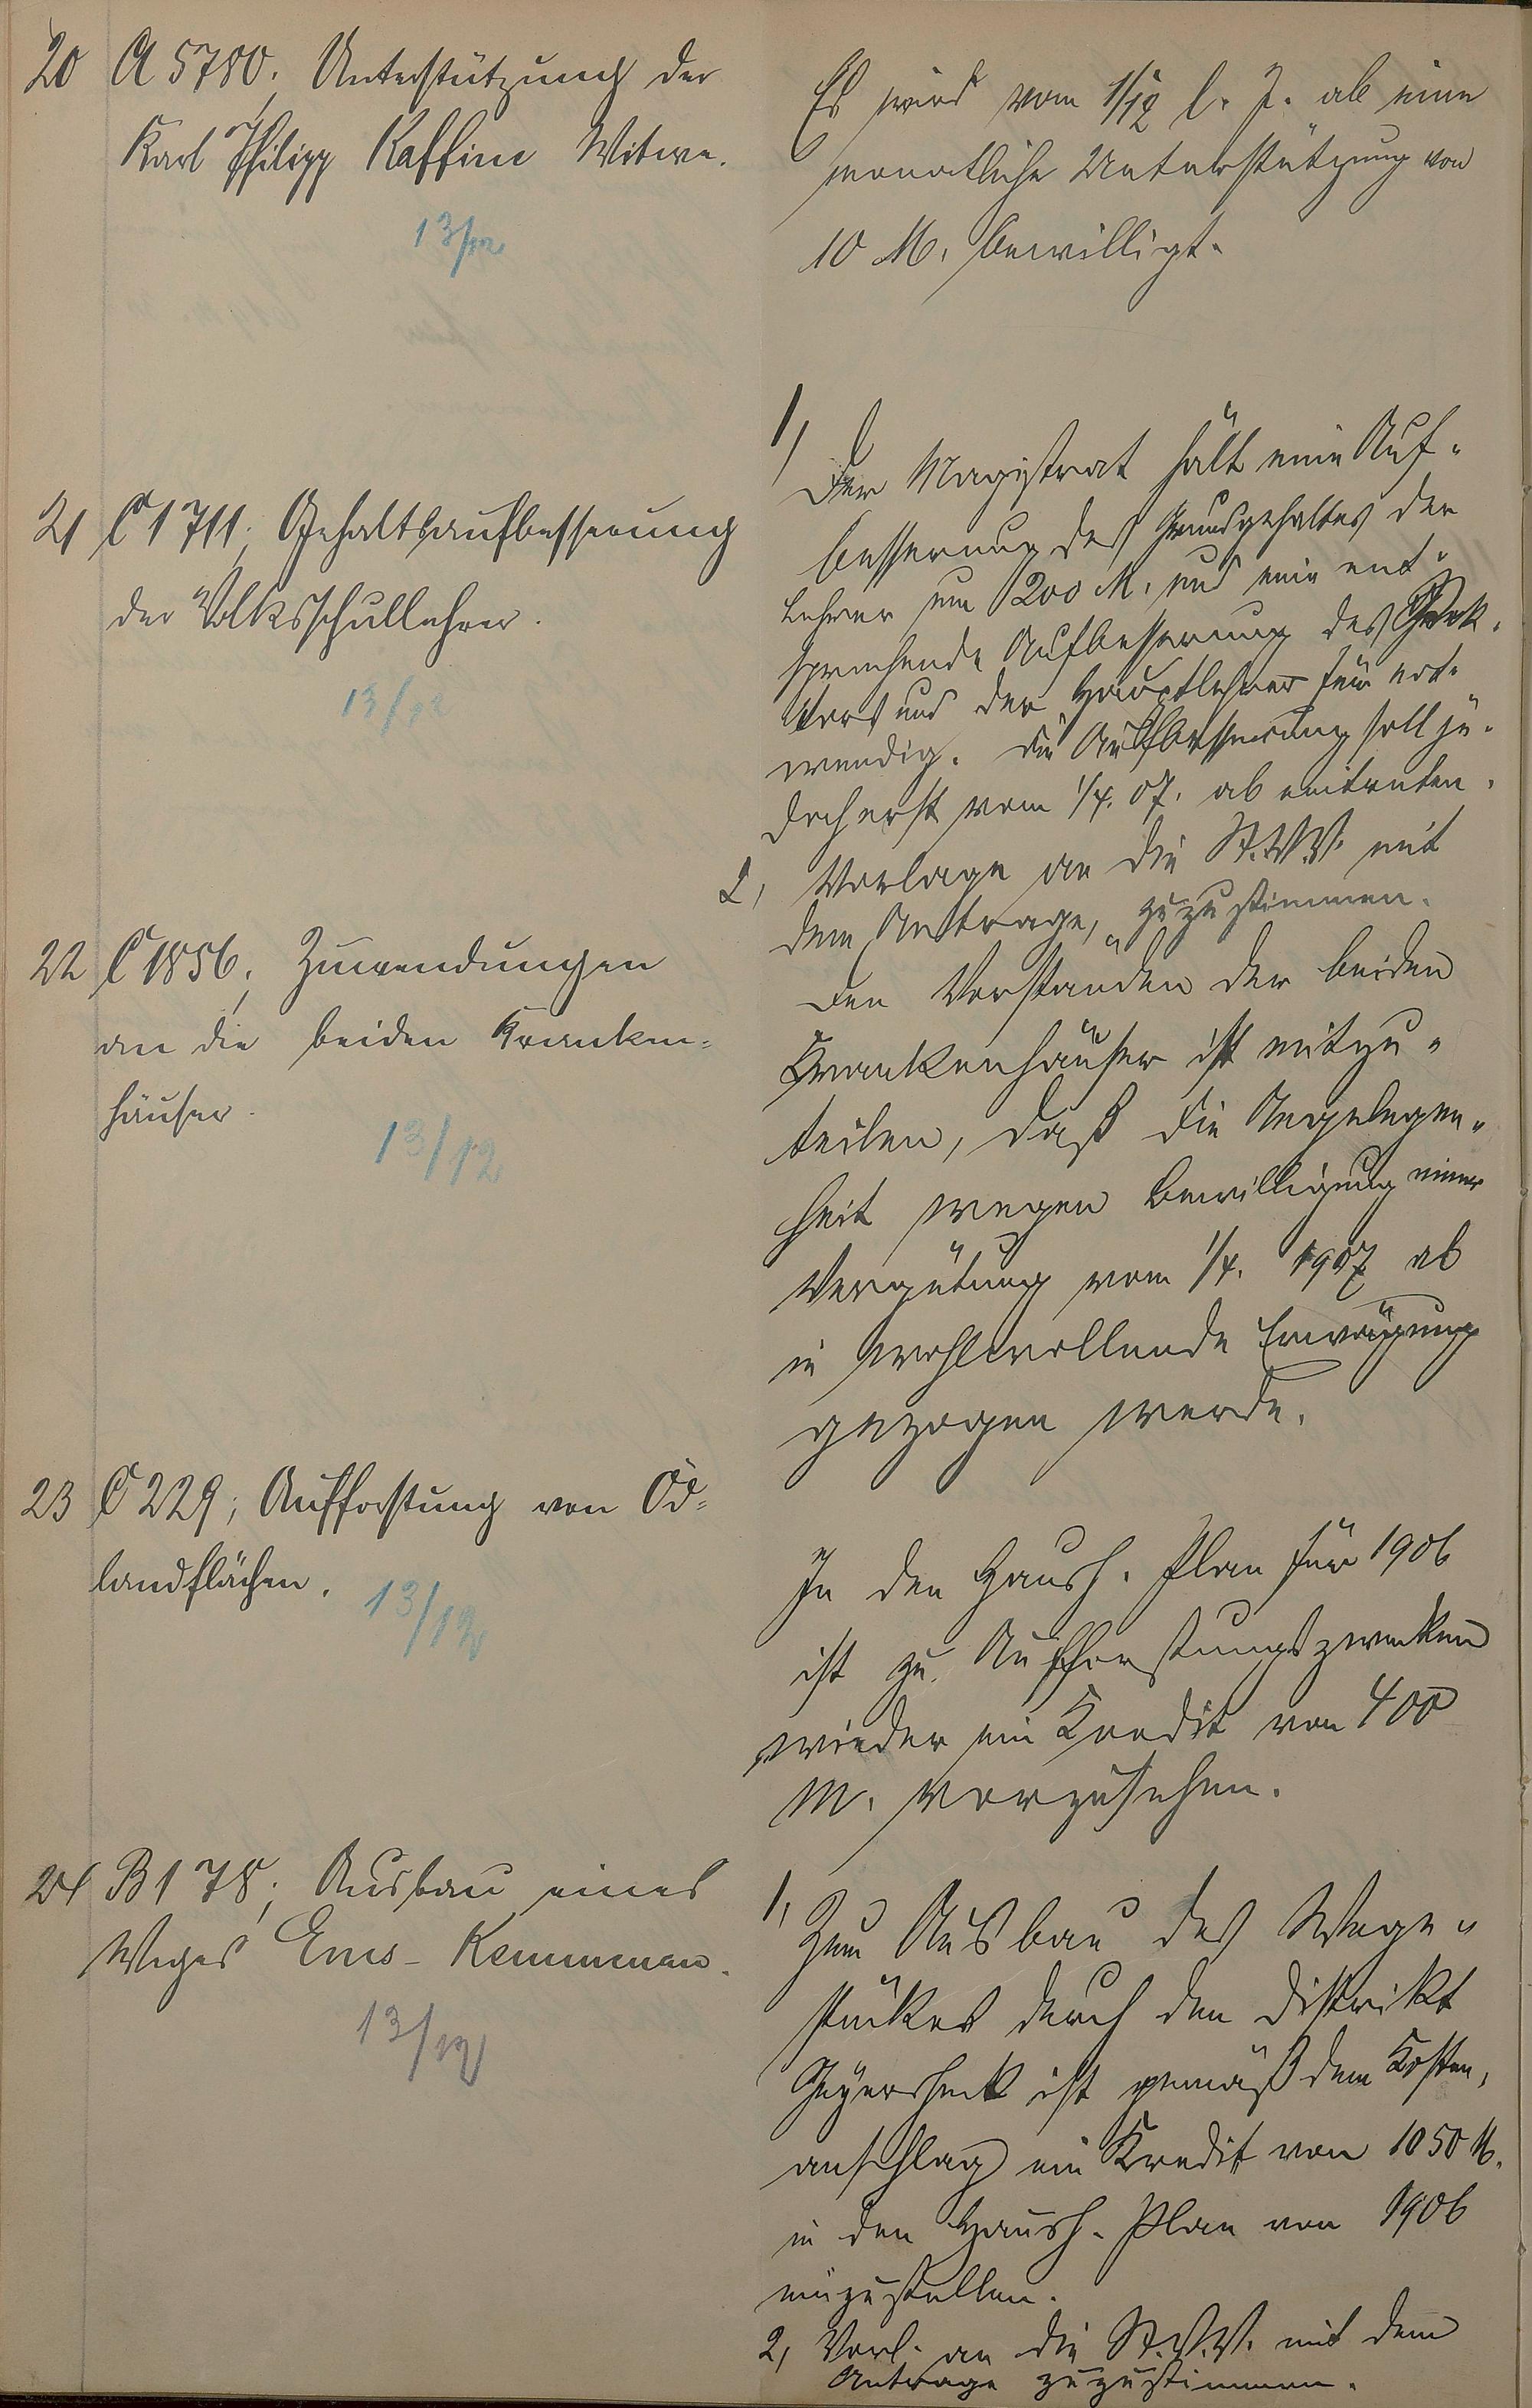 20 A 5780, Unterstützung der
Karl Philipp Kaffine Witwe.
13/12
Es wird vom 1/12 l. J. ab eine
monatliche Unterstützung von
10 M. bewilligt.
21 C 1711, Gehaltsaufbesserung
der Volksschullehrer.
13/12
1, Der Magistrat hält eine Auf-
besserung des Grundgehaltes der
Lehrer um 200 M. und eine ent-
sprechende Aufbesserung des Rek-
tors und der Hauptlehrer für not-
wendig. Die Aufbesserung soll je-
doch erst vom 1/4. 07. ab eintreten.
2, Vorlage an die St.V.V. mit
dem Antrage, zuzustimmen.
22 C 1856, Zuwendungen
an die beiden Kranken-
häuser.
13/12
Den Vorständen der beiden
Krankenhäuser ist mitzu-
teilen, daß die Angelegen-
heit wegen Bewilligung einer
Vergütung vom 1/4. 1907 ab
in wohlwollende Erwägung
gezogen werde.
23 C 229, Aufforstung von Öd-
landflächen.
13/12
In den Haush. Plan für 1906
ist zu Aufforstungszwecken
wieder ein Kredit von 400
M. vorzusehen.
24 B 178, Ausbau eines
Weges Ems-Kemmenau.
13/12
1, Zum Ausbau des Wege-
stückes durch den Distrikt
ist gemäß dem Kosten-
anschlag ein Kredit von 1050 M.
in den Haush. Plan von 1906
einzustellen.
2, Vorl. an die St.V.V. mit dem
Antrage zuzustimmen.